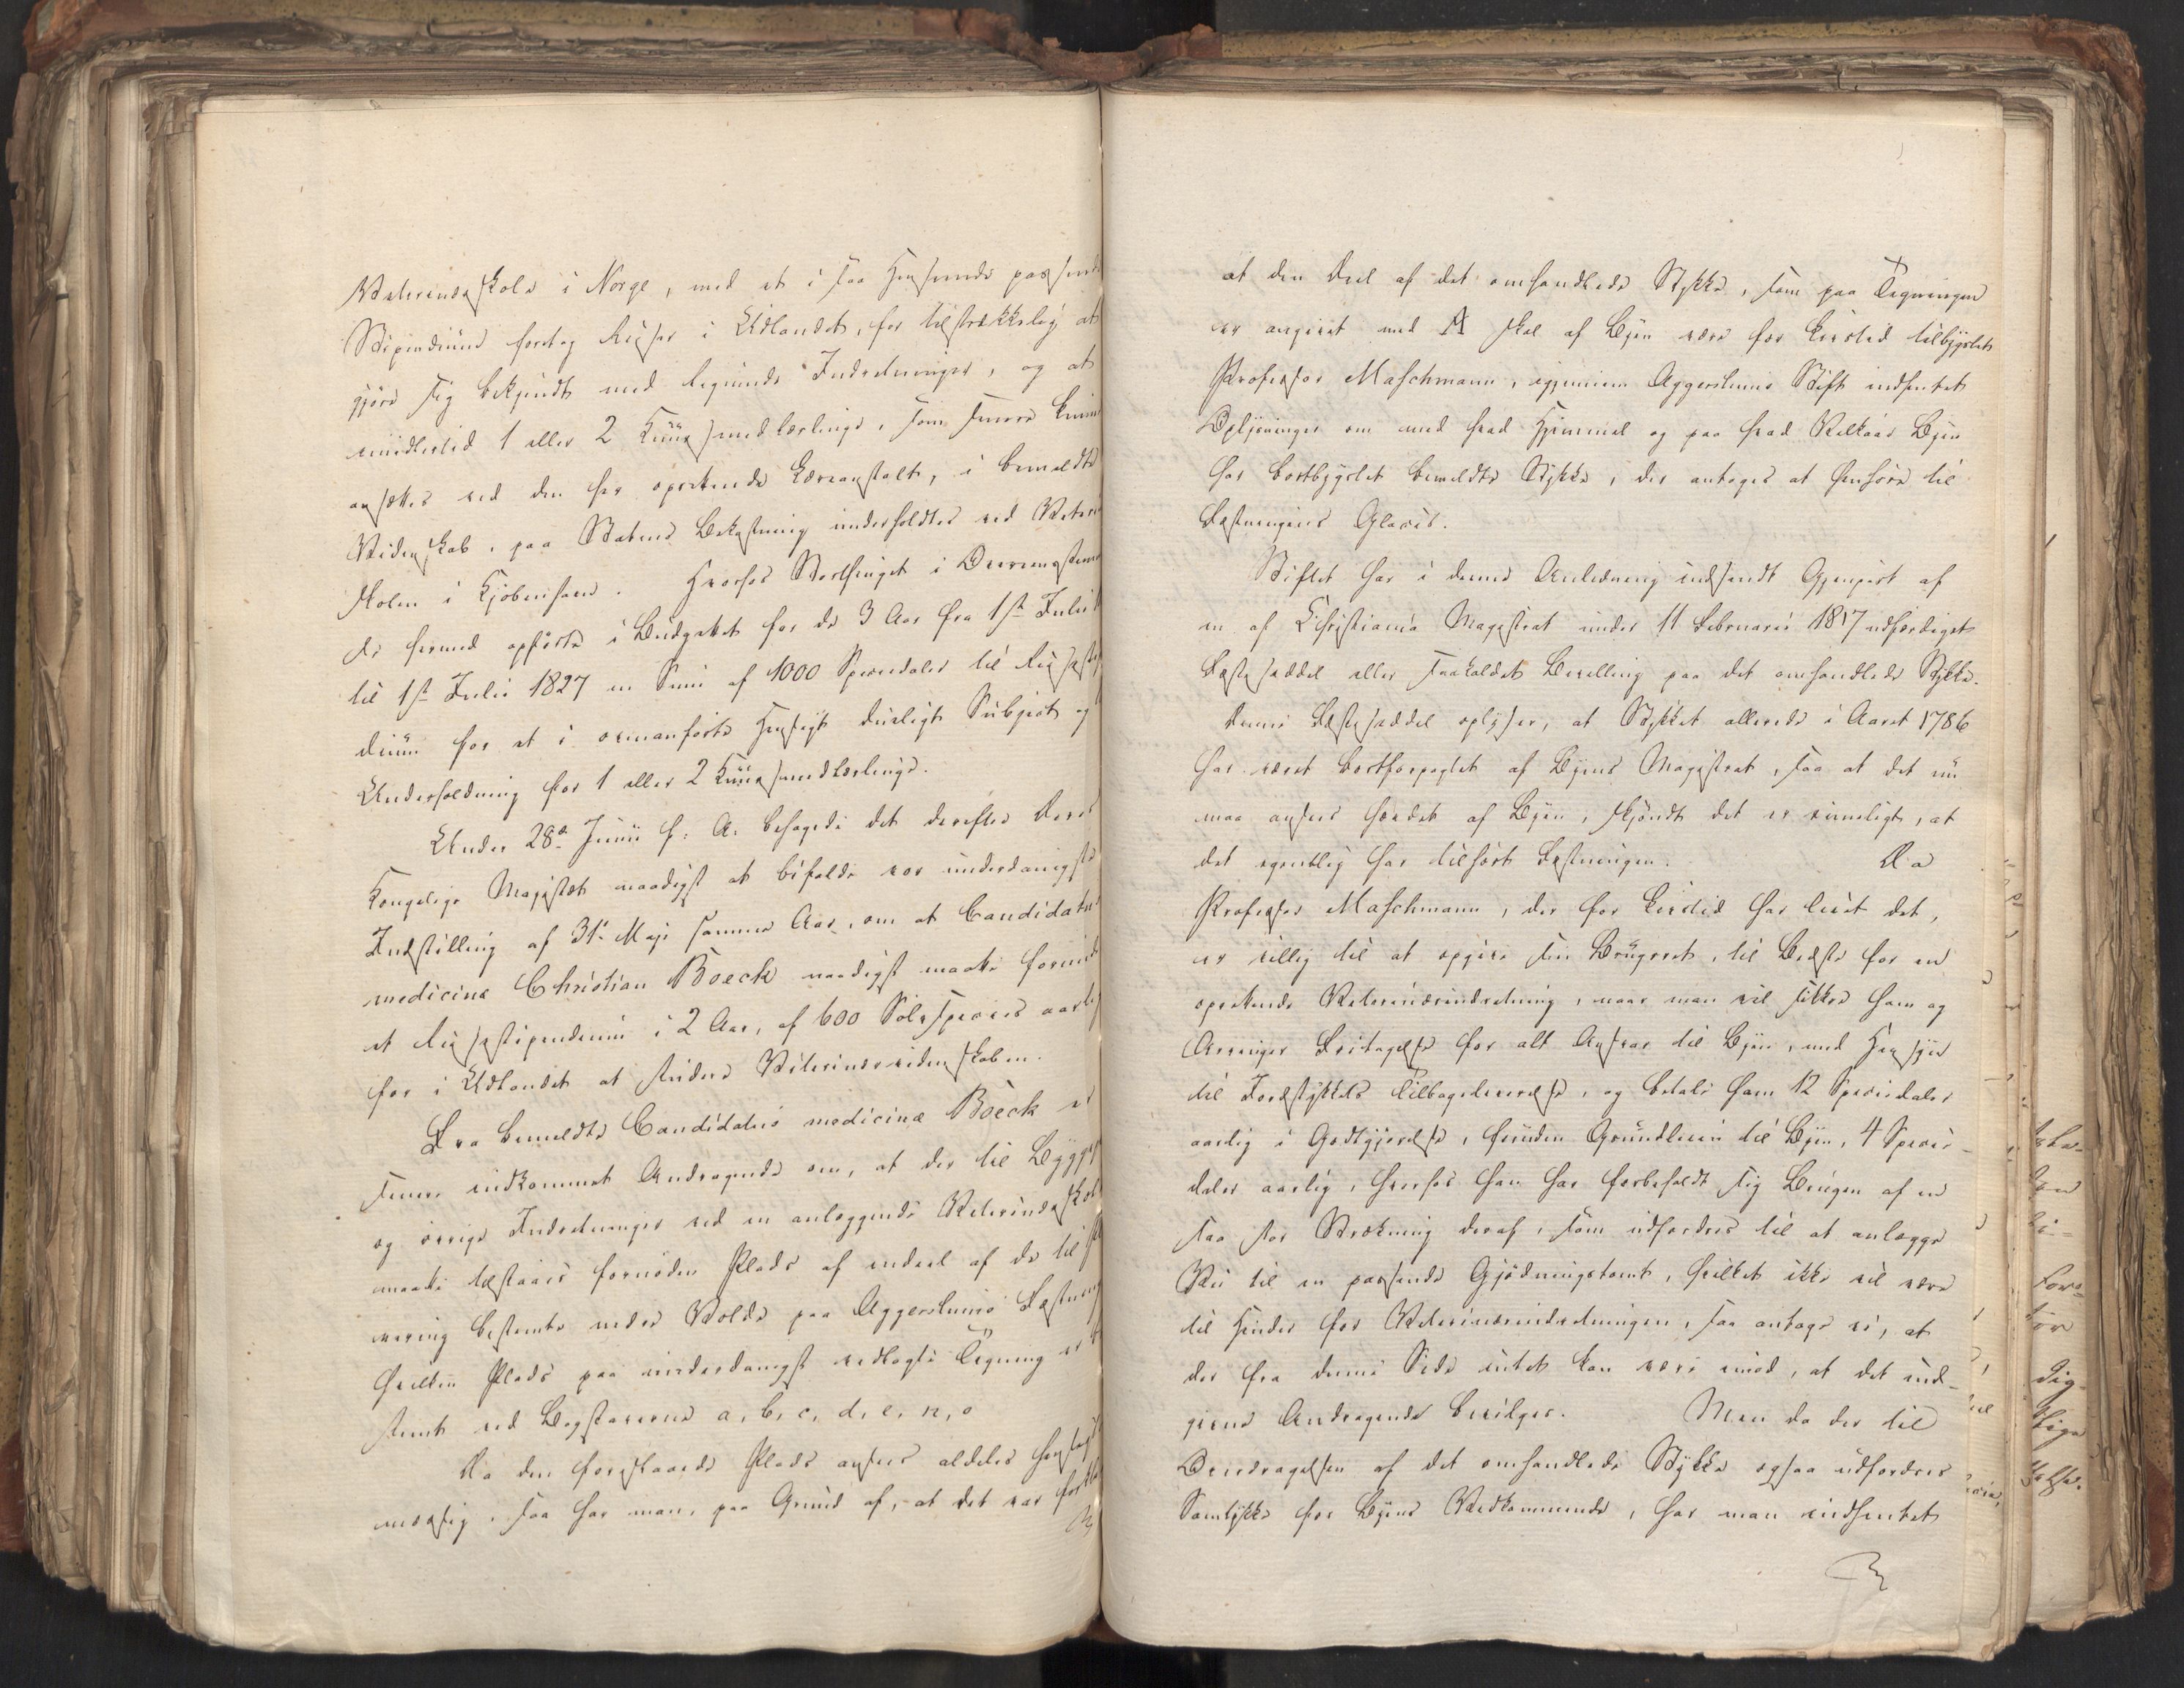 Veterinærskole i Norge, med et i saa Henseende passende
Stipendium foretog Reiser i Udlandet, for tilstrækkelig at
gjöre sig bekjendt med lignende Indretninger, og at
imidlertid 1 eller 2 Kuursmedlærlinge, som senere kunne
ansættes ved den her oprettende Læreanstalt, i bemeldte
Videnskab, paa Statens Bekostning underholdtes ved Veterinær
skolen i Kjöbenhavn. Hvorfor Storthinget i Overensstemmelse
dermed opförte i Budgettet for de 3 Aar fra 1ste Julii
til 1ste Julii 1827 en Sum af 1000 Speciedaler til Reisestipen
dium for et i ovenanförte Hensigt dueligt Subject og
Underholdning for 1 eller 2 Kuursmedlærlinge.
Under 28de Junii f: A: behagede det derefter Deres
Kongelige Majestæt naadigst at bifalde vor underdanigste
Indstilling af 31te Maji samme Aar, om at Candidatus
medicinæ Christian Boeck naadigst maatte forundes
et Reisestipendium i 2 Aar, af 600 Sölvspecies aarlig
for i Udlandet at studere Veterinærvidenskaben.
Fra bemeldte Candidatus medicinæ Boeck er
senere indkommet Andragende om, at der til Bygge
og övrige Indretninger ved en anlæggende Veterinærskole
maatte tilstaaes fornöden Plads af endeel af de til
bestemte nedre Volde paa Aggershuus Fæstning
hvilken Plads paa underdanigst vedlagte Tegning er
stemt ved Bogstaverne a, b, c, d, e, n, o
Da den foreslaaede Plads ansees aldeles hensigts
mæssig, saa har man, paa Grund af, at det var
at den Deel af det omhandlede Stykke, som paa Tegningen
er angivet med A skal af Byen være for Livstid tilbygslet
Professor Maschmann, igjennem Aggershuus Stift indhentet
Oplysninger om med hvad Hjemmel og paa hvad Vilkaar Byen
har bortbygslet bemeldte Stykke, der antages at henhöre til
Fæstningens Glacis.
Stiftet har i denne Anledning indsendt Gjenpart af
en af Christiania Magistrat under 11 Februarii 1817 udfærdiget
Fæstesæddel eller saakaldet Bevilling paa det omhandlede Stykke.
Denne Fæstesæddel oplyser, at Stykket allerede i Aaret 1786
har været bortforpagtet af Byens Magistrat, saa at det nu
maa ansees hævdet af Byen, skjöndt det er rimeligt, at
det egentlig har tilhört Fæstningen. Da
Professor Maschmann, der for Livstid har leiet det,
er villig til at opgive sin Brugsret, til Bedste for en
oprettende Veterinærindretning, naar man vil sikkre ham og
Arvinger Fritagelse for alt Ansvar til Byen, med Hensyn
til Jordstykkets Tilbageleverelse, og betale ham 12 Speciedaler
aarlig i Godtgjörelse, foruden Grundleien til Byen, 4 Specie-
daler aarlig, hvorhos han har forbeholdt sig Brugen af en
saa stor Strækning deraf, som udfordres til at anlægge
Vei til en passende Gjödningstomt, hvilket ikke vil være
til Hinder for Veterinærindretningen, saa antage vi, at
der fra denne Side intet kan være imod, at det ind-
givne Andragende bevilges. Men da der til
Overdragelsen af det omhandlede Stykke ogsaa udfordres
Samtykke for Byens Vedkommende, har man indhentet